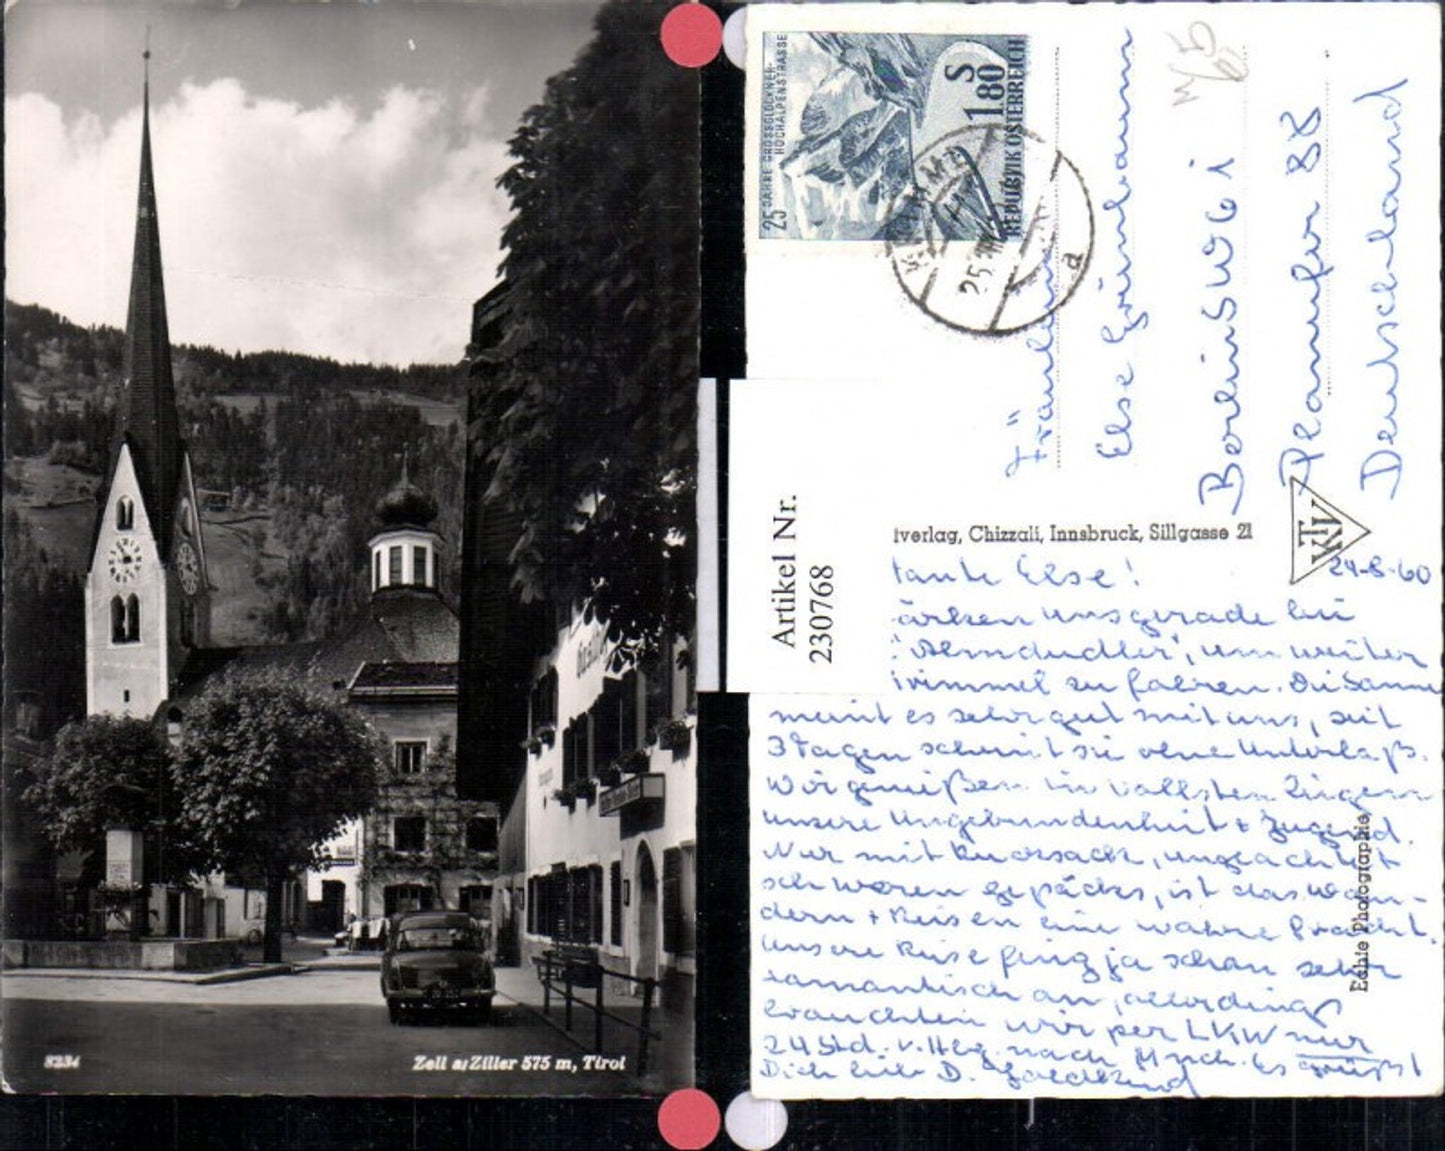 8234
Zell a. Ziller 575 m, Tirol
25 JAHRE GROSSGLOCKNER-
HOCHALPENSTRASSE
S 1.80
REPUBLIK ÖSTERREICH
25.
a
Fräulein
Else Grünbaum
Berlin SW 61
Planufer 88
Deutschland
Artikel Nr.
230768
tverlag, Chizzali, Innsbruck, Sillgasse 21
KTV
24-8-60
Echte Photographie
tante Else!
uns gerade bei
'Almdudler', um weiter
zu fahren. Die Sonne
meint es sehr gut mit uns, seit
3 Tagen scheint sie ohne Unterlaß.
Wir genießen in vollsten Zügen
unsere Ungebundenheit + Jugend.
Nur mit Rucksack, ungeachtet
schweren Gepäcks, ist das Wan-
dern + Reisen eine wahre Pracht.
Unsere Reise fing ja schon sehr
romantisch an, allerdings
brauchten wir per LKW nur
24 Std. v. Hbg. nach Mnch. Es grüßt
Dich lieb D.